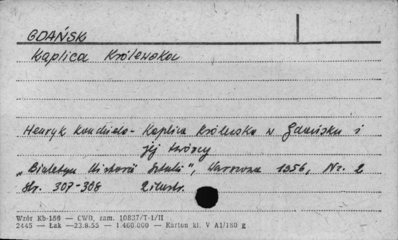 GDAŃSK
Kaplica Królewska
Henryk Kondziela - Kaplica Królewska w Gdańsku i
jej twórcy
„Biuletyn Historii Sztuki", Warszawa 1956, Nr. 2
str. 307-308 2 ilustr.
Wzór Kb-168 — CWD, zam. 10837/T-1/II
2445 — Łak —23.8.55 — 1.400.000 — Karton kl. V A1/180 g